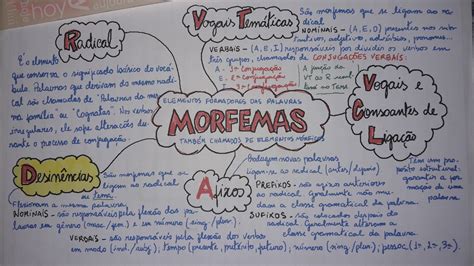 hoy
Radical
É o elemento
que conserva o significado básico do vocá-
bulo. Palavras que derivam do mesmo radi-
cal são chamadas de "Palavras da mes-
ma família ou "Cognatas". Nos verbos
irregulares, ele sofre alteração du-
rante o processo de conjugação.
Vogais Temáticas
São morfemas que se ligam ao ra-
dical
NOMINAIS - (A, E, O) presentes nos subs-
tantivos, adjetivos, advérbios, pronomes...
VERBAIS - (A, E, I) responsáveis por dividir os verbos em
três grupos, chamados de CONJUGAÇÕES VERBAIS.
A 1ª Conjugação
E 2ª conjugação
I 3ª conjugação
A junção da
VT ao R resul
Vogais e
Consoantes de
Ligação
Têm um pro-
pósito estrutural:
garantir a for-
mação de uma
palavra
ELEMENTOS FORMADORES DAS PALAVRAS
MORFEMAS
TAMBÉM CHAMADOS DE ELEMENTOS MÓRFICOS
Desinências
São morfemas que se
ligam ao radical
ou tema.
Flexionam a mesma palavra.
NOMINAIS - são responsáveis pela flexão das pa-
lavras em gênero (masc./fem) e em número (sing./plur).
VERBAIS - são responsáveis pela flexão dos verbos
em modo (ind./subj); tempo (presente, pretérito, futuro); número (sing./plur); pessoa (1ª, 2ª, 3ª).
Afixos
novas palavras
ligam-se ao radical (antes/depois)
PREFIXOS - são afixos anteriores
ao radical. Geralmente não mu-
dam a classe gramatical da palavra.
SUFIXOS - são colocados depois do
radical. Geralmente alteram a
classe gramatical da palavra.